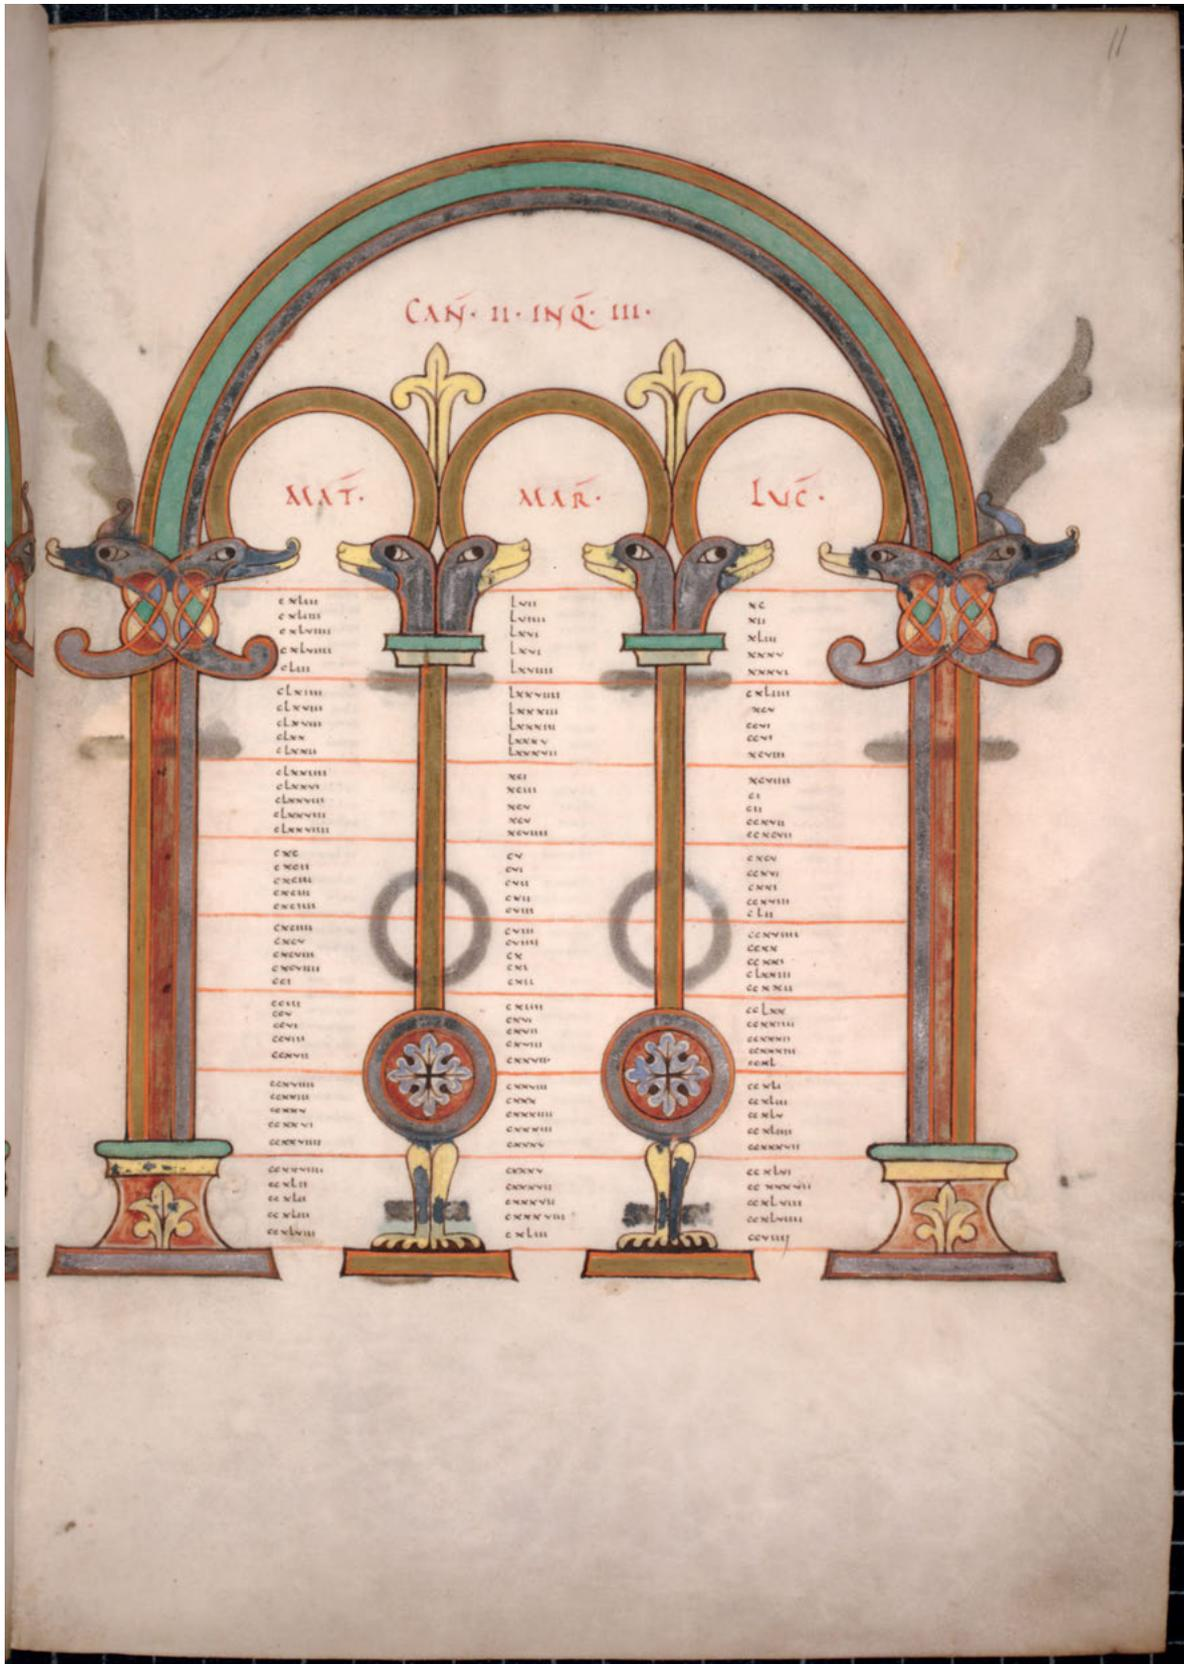 11
CAN̄· II· INQ̄· III·
MAT̄· MAR̄· LUC̄·
cxliii lvii xc
cxliiii lviiii xii
cxlviiii lxvi xliii
cxlviiii lxvi xxxv
cliii lxviiii xxxvi
clxiiii lxxviiii cxliiii
clxviii lxxxiii xcv
clxviii lxxxiii ccvi
clxx lxxxv ccvi
clxxii lxxxvii xcviii
clxxiiii xci xcviiii
clxxvi xciii ci
clxxviii xcv cii
clxxviii xcv ccxvii
clxxviiii xcviiii ccxcvii
cxc cv cxcv
cxcii cvi ccxvi
cxciii cvii cxxi
cxciii cvii ccxviii
cxciiii cviii clii
cxciiii cviii ccxviiii
cxcv cviiii ccxx
cxcviii cx ccxxi
cxcviiii cxi clxxiii
cci cxii ccxxii
cciii cxiiii cclxx
ccv cxvi ccxxiiii
ccvi cxvii ccxxxii
ccviii cxviii ccxxxiii
ccxvii cxxvii ccxl
ccxviiii cxxviii ccxli
ccxxiii cxxx ccxliii
ccxxv cxxxiiii ccxlv
ccxxvi cxxxiii ccxliiii
ccxxviiii cxxxv ccxxxvii
ccxxviiii cxxxv ccxlvi
ccxlii cxxxvii ccxxxvii
ccxlii cxxxvii ccxlviii
ccxliii cxxxviii ccxlviiii
ccxlviii cxliii ccviiij